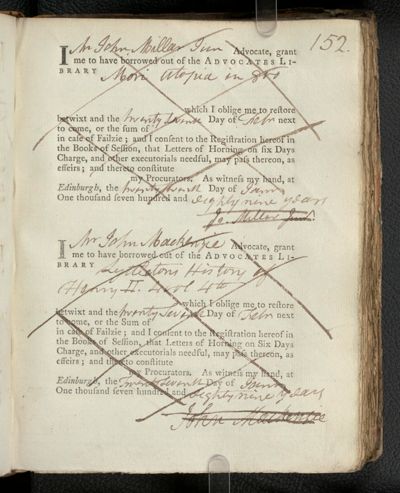 152.
I Mr John Millar Jun Advocate, grant
me to have borrowed out of the ADVOCATES LI-
BRARY Mori utopia in 8vo
which I oblige me to restore
betwixt and the twenty Day of Febr next
to come, or the sum of
in case of Failzie; and I consent to the Registration hereof in
the Books of Session, that Letters of Horning on six Days
Charge, and other executorials needful, may pass thereon, as
effeirs; and thereto constitute
my Procurators. As witness my hand, at
Edinburgh, the twenty seventh Day of Janry
One thousand seven hundred and eighty nine years
Jo. Millar Jun.
I Mr John Mackenzie Advocate, grant
me to have borrowed out of the ADVOCATES LI-
BRARY Lyttletons History of
Henry II. 4 vol 4to
which I oblige me to restore
betwixt and the twenty seventh Day of Febr next
to come, or the Sum of
in case of Failzie; and I consent to the Registration hereof in
the Books of Session, that Letters of Horning on Six Days
Charge, and other executorials needful, may pass thereon, as
effeirs; and thereto constitute
my Procurators. As witness my hand, at
Edinburgh, the Twenty seventh Day of Janry
One thousand seven hundred and eighty nine years
John Mackenzie